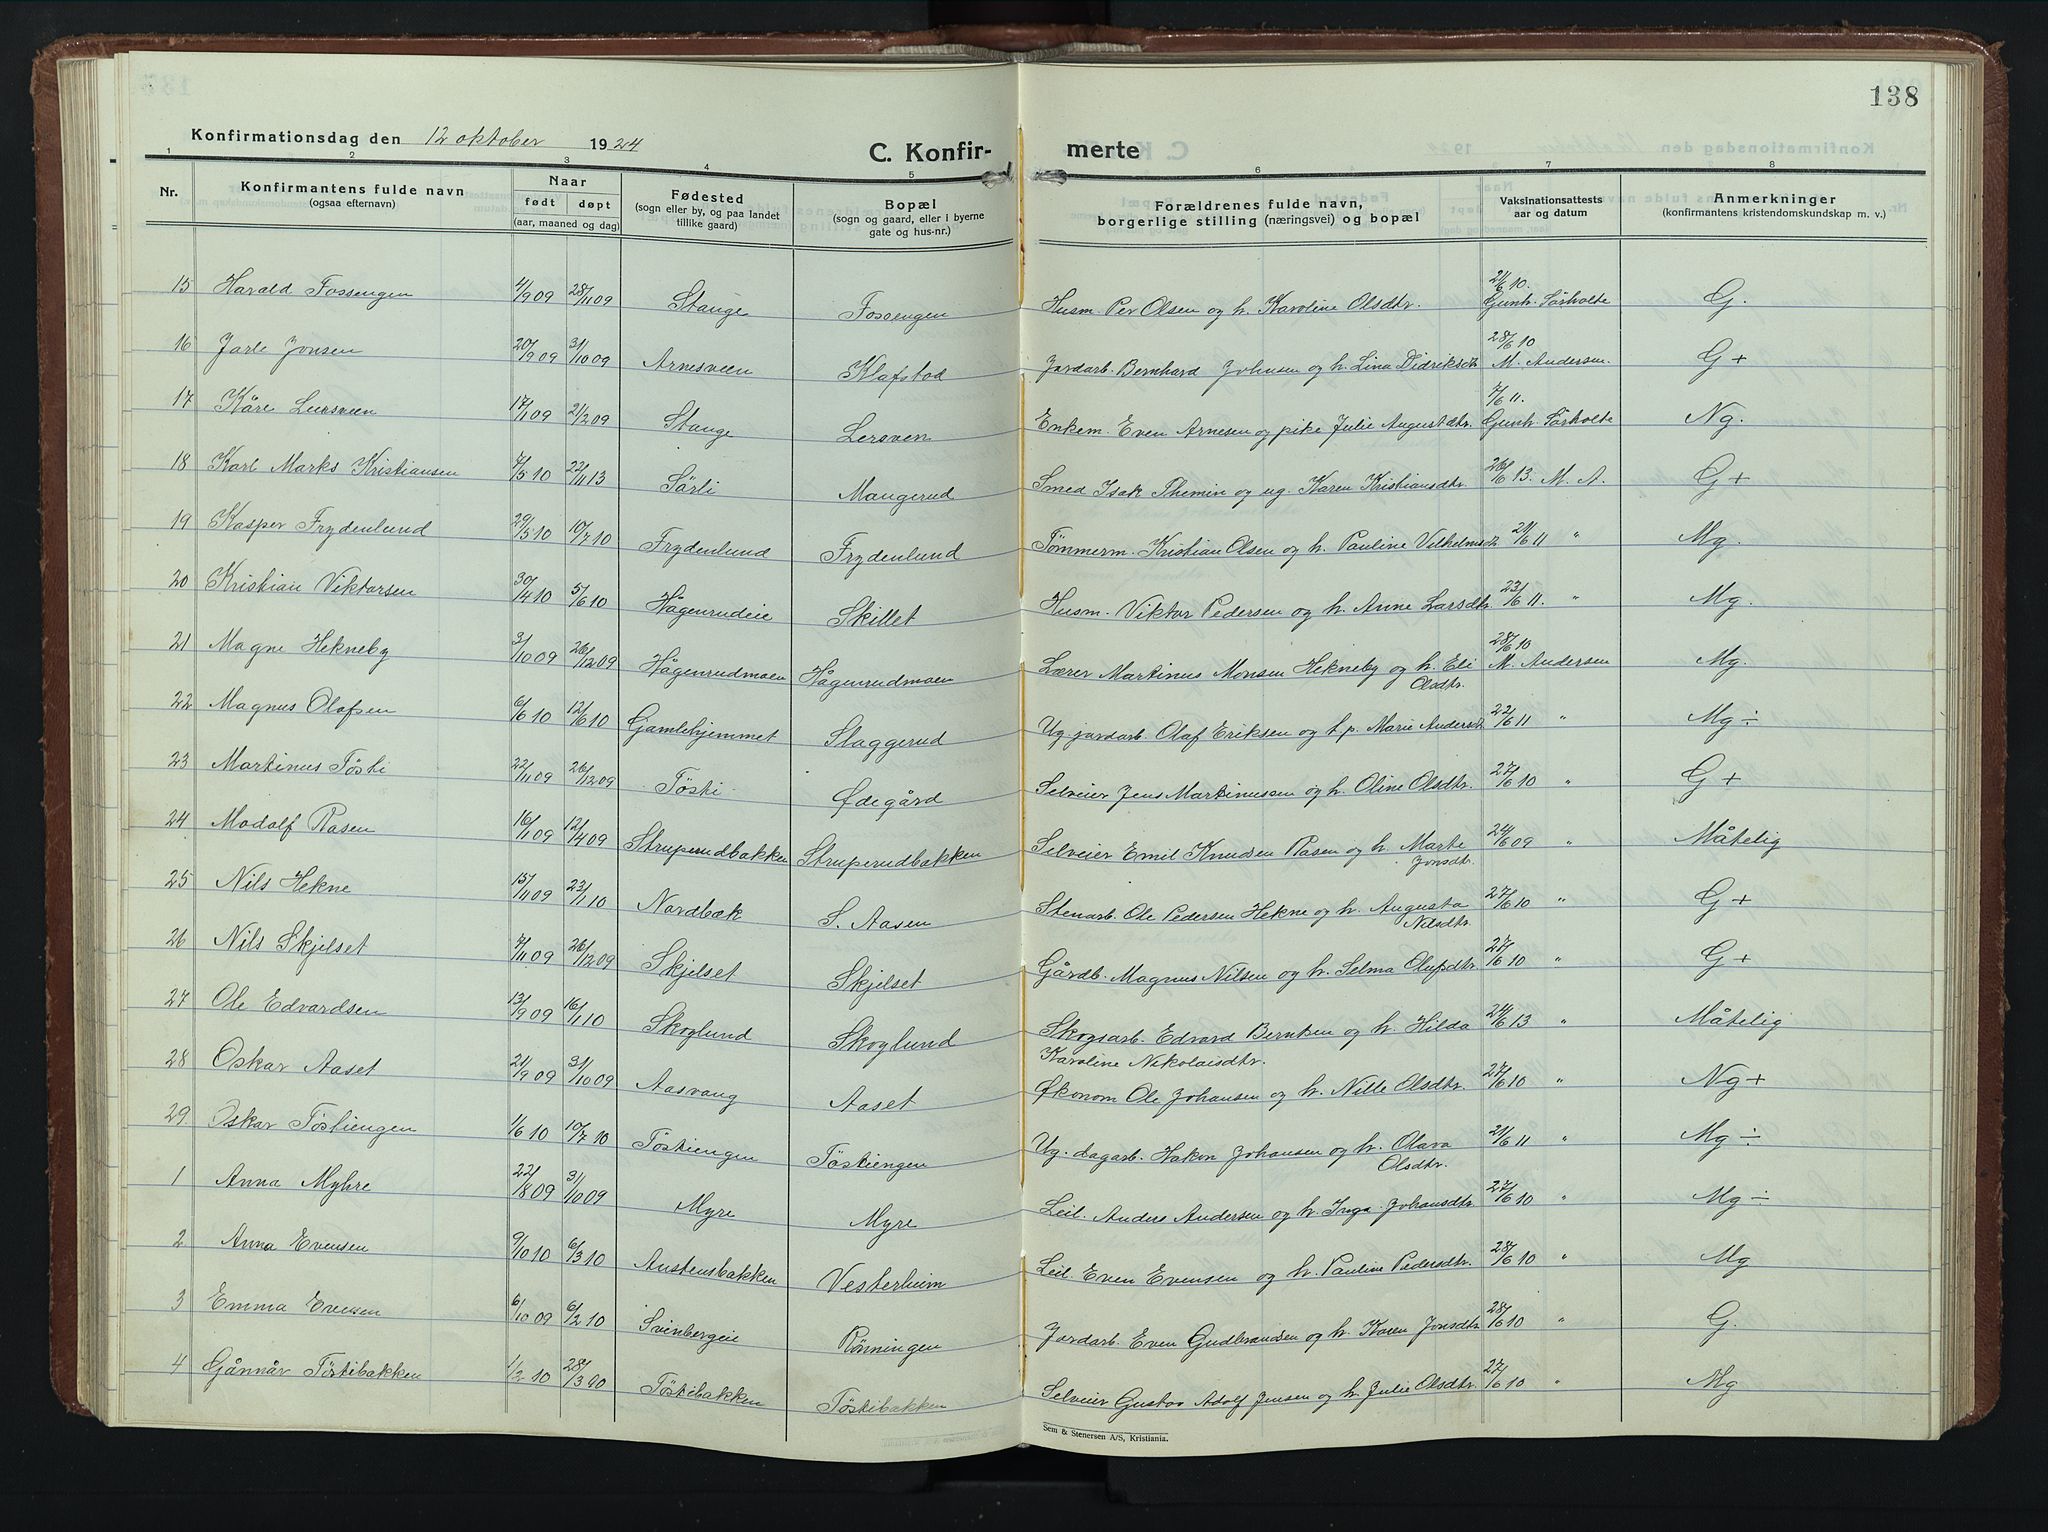 138
Konfirmationsdag den 12 oktober 1924
C. Konfir- merte
1 2 3 4 5 6 7 8
Nr. Konfirmantens fulde navn (ogsaa efternavn) Naar født døpt (aar, maaned og dag) Fødested (sogn eller by, og paa landet tillike gaard) Bopæl (sogn og gaard, eller i byerne gate og hus-nr.) Forældrenes fulde navn, borgerlige stilling (næringsvei) og bopæl Vaksinationsattests aar og datum Anmerkninger (konfirmantens kristendomskundskap m. v.)
15 Harald Fossengen 4/9 09 28/11 09 Stange Fossengen Husm. Per Olsen og h. Karoline Olsdtr. 21/6 10. Gunh. Sørholte G.
16 Jarle Jonsen 20/9 09 31/10 09 Arnesveen Klafstad Jordarb. Bernhard Johnsen og h. Lina Didriksdtr 28/6 10 M. Andersen. G+
17 Kåre Lersveen 17/11 09 21/2 09 Stange Lersven Enkem. Even Arnesen og pike Julie Augustdtr. 7/6 11. Gunh. Sørholte Ng.
18 Karl Marks Kristiansen 7/5 10 22/11 13 Sørli Mangerud Smed Isak Themin og ug. Karen Kristiansdtr. 26/6 13. M. A. G+
19 Kasper Frydenlund 29/5 10 10/7 10 Frydenlund Frydenlund Tømmerm. Kristian Olsen og h. Pauline Vilhelmsdtr 21/6 11 " Mg.
20 Kristian Viktorsen 30/4 10 5/6 10 Hågenrudeie Skillet Husm. Viktor Pedersen og h. Anne Larsdtr. 23/6 11. " Mg.
21 Magne Hekneby 3/10 09 26/12 09 Hågenrudmoen Hågenrudmoen Lærer Martinus Monsen Hekneby og h. Eli Olsdtr. 28/6 10 M. Andersen Mg.
22 Magnus Olafsen 6/6 10 12/6 10 Gamlehjemmet Slaggerud Ug. jordarb. Olaf Eriksen og t.p. Marie Andersdtr 22/6 11 " Mg ÷
23 Martinus Tøsti 22/11 09 26/12 09 Tøsti Ødegård Selveier Jens Martinussen og h. Oline Olsdtr. 27/6 10 " G+
24 Modolf Rasen 16/1 09 12/4 09 Struperudbakken Struperudbakken Selveier Emil Knudsen Rasen og h. Marte Jonsdtr. 24/6 09 " Måtelig
25 Nils Hekne 15/11 09 23/1 10 Nordbæk S. Aasen Stenarb. Ole Pedersen Hekne og h. Augusta Nilsdtr. 27/6 10 " G+
26 Nils Skjelset 7/11 09 26/12 09 Skjelset Skjelset Gårdb. Magnus Nilsen og h. Selma Olufsdtr. 27/6 10 " G+
27 Ole Edvardsen 13/9 09 16/1 10 Skoglund Skoglund Skogsarb. Edvard Berntsen og h. Hilda Karoline Nikolaisdtr. 24/6 13 " Måtelig
28 Oskar Aaset 21/9 09 31/10 09 Aasvang Aaset Økonom Ole Johansen og h. Nille Olsdtr. 27/6 10 " Ng+
29. Oskar Tøstiengen 1/6 10 10/7 10 Tøstiengen Tøstiengen Ug. dagarb. Hakon Johansen og h. Olava Olsdtr. 21/6 11 " Mg ÷
1 Anna Myhre 22/8 09 31/10 09 Myre Myre Leil. Anders Andersen og h. Inga Johansdtr. 27/6 10 " Mg ÷
2 Anna Evensen 9/10 10 6/3 10 Austensbakken Vesterheim Leil. Even Evensen og h. Pauline Pedersdtr. 28/6 10 " Mg
3 Emma Evensen 6/10 09 6/2 10 Svenbergeie Rønningen Jordarb. Even Gudbrandsen og h. Karen Jonsdtr. 28/6 10 " G.
4 Gånnår Tøstibakken 1/2 10 28/3 90 Tøstibakken Tøstibakken Selveier Gustav Adolf Jensen og h. Julie Olsdtr. 27/6 10 " Mg
Sem & Stenersen A/S, Kristiania.